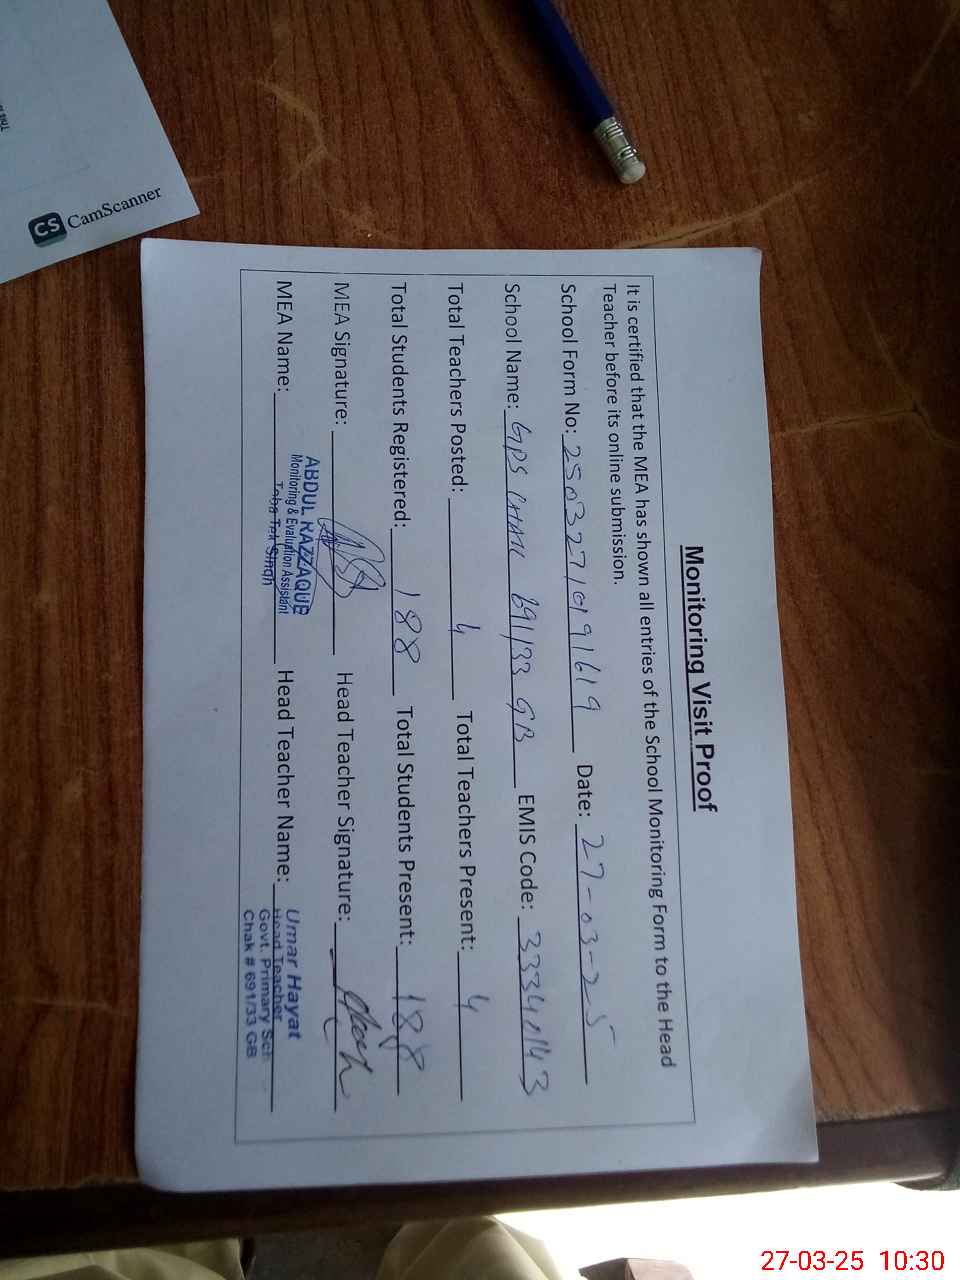 Monitoring Visit Proof
It is certified that the MEA has shown all entries of the School Monitoring Form to the Head
Teacher before its online submission.
School Form No: 25032710191619 Date: 27-03-25
School Name: GPS CHAK 691/33 GB EMIS Code: 33340143
Total Teachers Posted: 4 Total Teachers Present: 4
Total Students Registered: 188 Total Students Present: 188
MEA Signature: Head Teacher Signature:
MEA Name: ABDUL RAZZAQUE Head Teacher Name: Umar Hayat
Monitoring & Evaluation Assistant
Toba Tek Singh
Head Teacher
Govt. Primary Sch
Chak # 691/33 GB
CS CamScanner
27-03-25 10:30